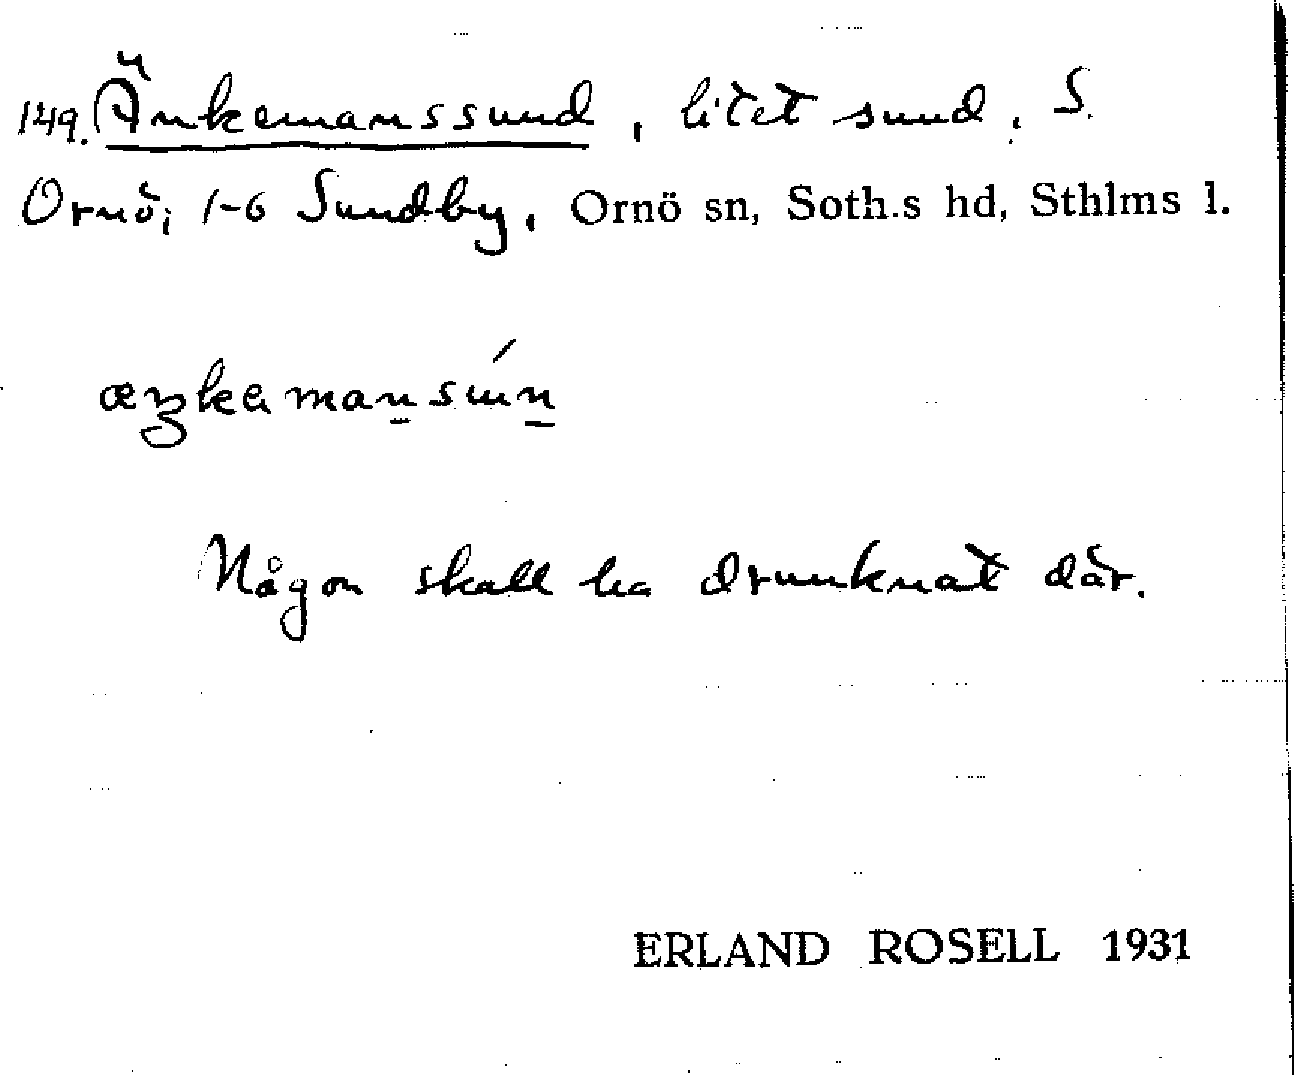 149. Änkemanssund, litet sund. S.
Ornö; 1-6 Sundby, Ornö sn, Soth.s hd, Sthlms l.
æŋkamansún
Någon skall ha drunknat där.
ERLAND ROSELL 1931